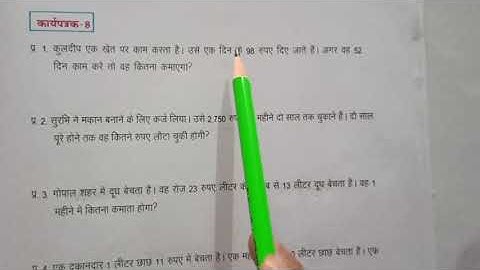 कार्यपत्रक-8
प्र. 1. कुलदीप एक खेत पर काम करता है। उसे एक दिन के 98 रुपए दिए जाते हैं। अगर वह 52
दिन काम करे तो वह कितना कमाएगा?
प्र. 2. सुरभि ने मकान बनाने के लिए कर्ज लिया। उसे 2,750 महीने दो साल तक चुकाने हैं। दो साल
पूरे होने तक वह कितने रुपए लौटा चुकी होगी?
प्र. 3. गोपाल शहर में दूध बेचता है। वह रोज़ 23 रुपए लीटर से 13 लीटर दूध बेचता है। वह 1
महीने में कितना कमाता होगा?
प्र. 4. एक दुकानदार 1 लीटर छाछ 11 रुपए में बेचता है। एक लीटर छाछ बेचता है। एक